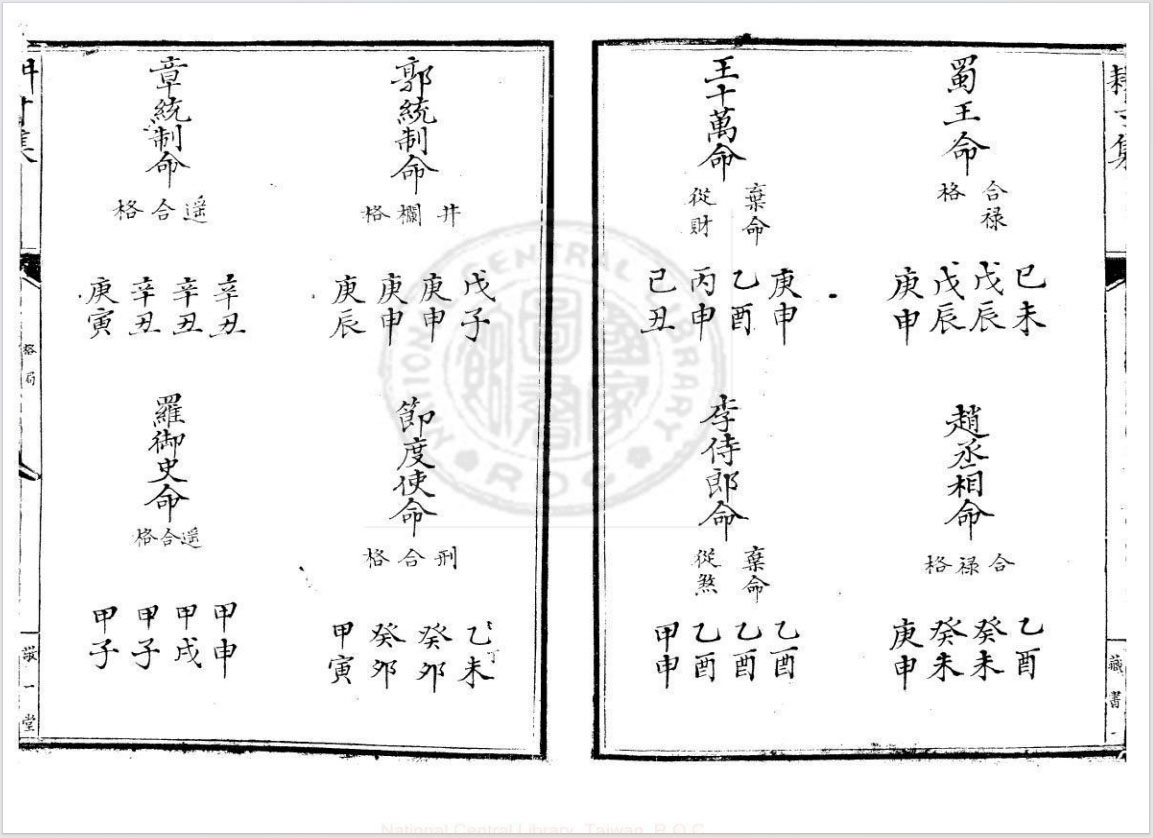 藏書
蜀王命
合禄
格
己未
戊辰
戊辰
庚申
趙丞相命
合禄格
乙酉
癸未
癸未
庚申
王十萬命
棄命
從財
庚申
乙酉
丙申
己丑
李侍郎命
棄命
從煞
乙酉
乙酉
乙酉
甲申
郭統制命
井欄格
戊子
庚申
庚申
庚辰
節度使命
刑合格
乙未
癸卯
癸卯
甲寅
章統制命
遥合格
辛丑
辛丑
辛丑
庚寅
羅御史命
遥合格
甲申
甲戌
甲子
甲子
格局
敬一堂
NATIONAL CENTRAL LIBRARY
R.O.C
國家圖書館
National Central Library, Taiwan, R.O.C